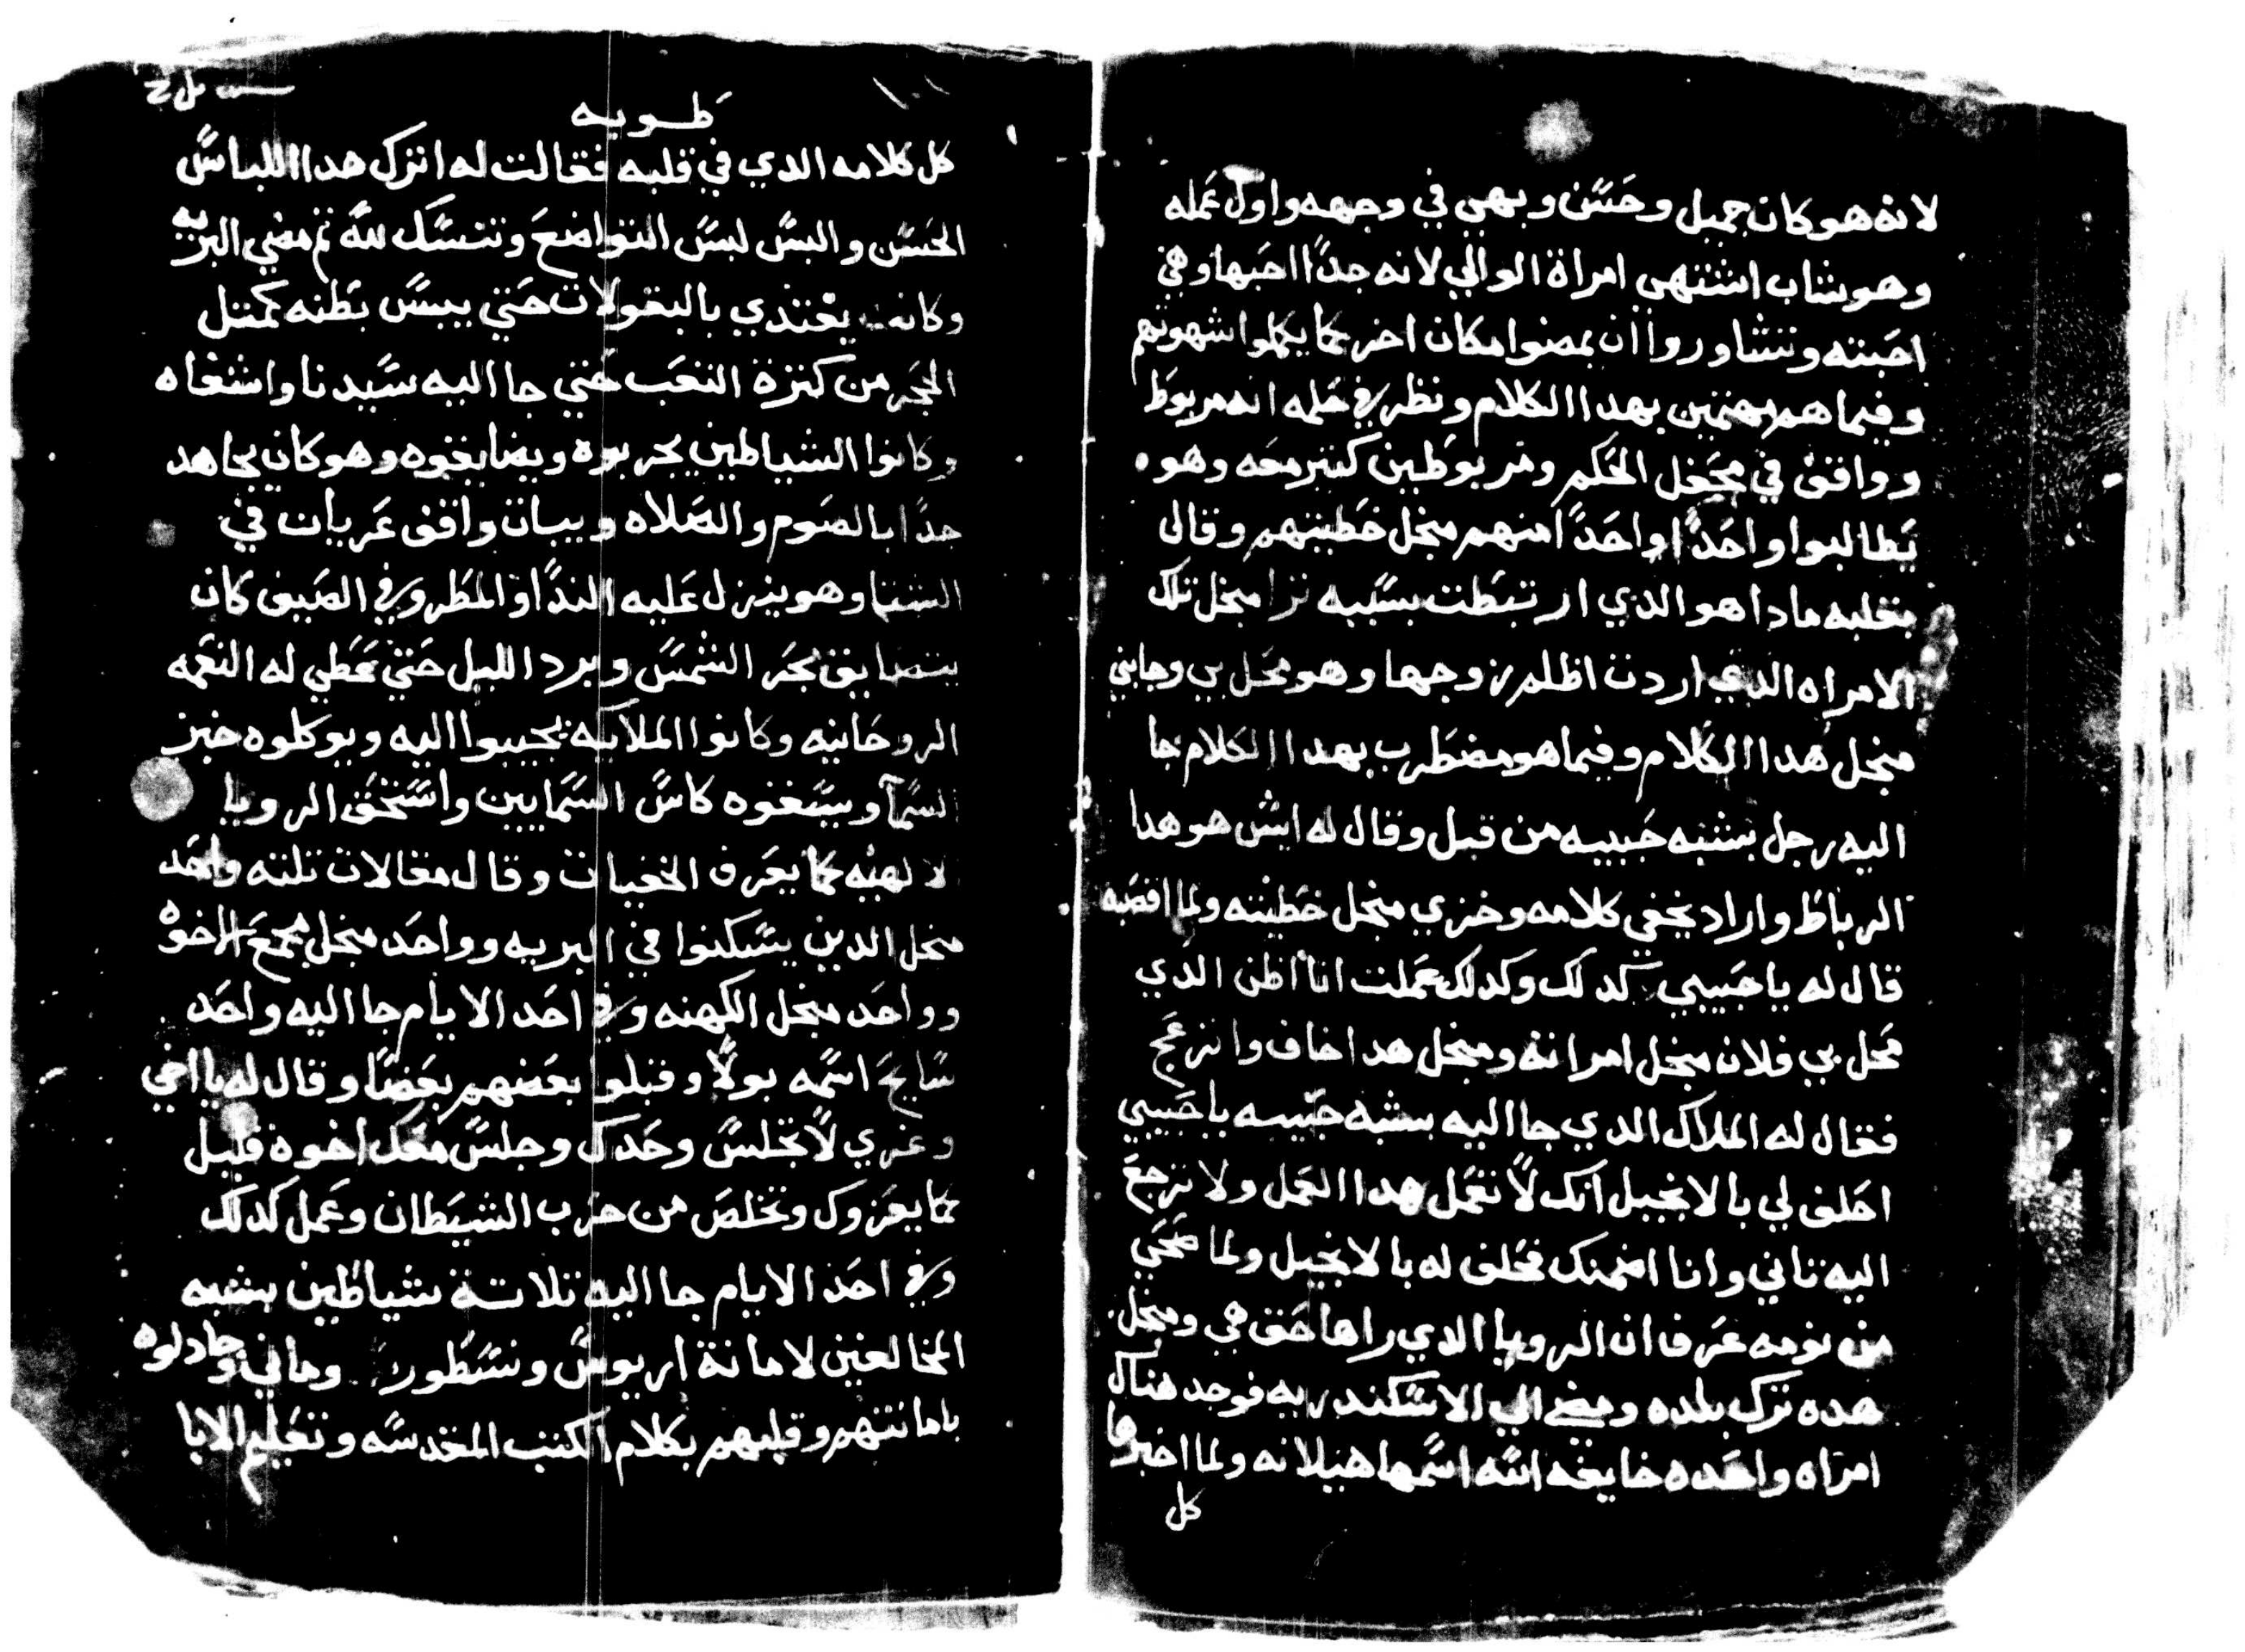 لانه هو كان جميل وحسن وبهي في وجهه واول عمله
وهو شاب اشتهي امراة الوالي لانه جدًا احبها وهي
احبته وتشاوروا ان يمضوا مكان اخر كما يكملوا شهوتهم
وفيما هم مهتمين بهدا الكلام ونظر في حلمه انه مربوط
وواقف في محفل الحكم ومربوطين كتير معه وهو
يطالبوا واحدًا واحدًا منهم منجل خطيتهم وقال
بقلبه مادا هو الدي ارتبطت بسببه ترا منجل تلك
الامراه الدي اردت اظلم زوجها وهو محل بي وجابني
منجل هدا الكلام وفيما هو مضطرب بهدا الكلام جا
اليه رجل بشبه حبيبه من قبل وقال له ايش هو هدا
الرباط واراد يخفي كلامه وخزي منجل خطيته ولما اغصبه
قال له يا حبيبي كدلك وكدلك عملت انا اظن الدي
محل بي فلان منجل امراته ومنجل هدا اخاف وانزعج
فقال له الملاك الدي جا اليه بشبه حبيبه يا حبيبي
احلف لي بالانجيل انك لا تعمل هدا العمل ولا ترجع
اليه تاني وانا اضمنك فحلف له بالانجيل ولما صحي
من نومه عرف ان الرويا الدي راها حق هي ومنجل
هده ترك بلده ومضي الي الاسكندريه فوجد هناك
امراه واحده خايفه الله اسمها هيلانه ولما اخبرها
كل
طوبه
كل كلامه الدي في قلبه فقالت له اترك هدا اللباس
الحسن والبس لبس التواضع وتنسك لله ثم مضي البريه
وكانت يغتدي بالبقولات حتي يبس بطنه كمتل
الحجر من كترة التعب حتي جا اليه سيدنا واشفاه
وكانوا الشياطين يحربوه ويضايقوه وهو كان يجاهد
جدًا بالصوم والصلاه ويبات واقف عريان في
الشتا وهو ينزل عليه الندا والمطر وفي الصيف كان
يتضايق بحر الشمس وبرد الليل حتي عطي له النعمه
الروحانيه وكانوا الملايكه يجيبوا اليه ويوكلوه خبز
السما ويسقوه كاس السمايين واستحق الرويا
الالهيه كما يعرف الخفيات وقال مقالات تلته واحد
منجل الدين يسكنوا في البريه وواحد منجل مجمع الاخوه
وواحد منجل الكهنه وفي احد الايام جا اليه واحد
سايح اسمه بولا وقبلوا بعضهم بعضًا وقال له يا اخي
وعزي لا تجلس وحدك وجلس معك اخوه قليل
كما يعزوك وتخلص من حرب الشيطان وعمل كدلك
وفي احد الايام جا اليه تلاتة شياطين بشبه
المخالفين لامانة اريوس ونسطور وماني وجادلوه
بامانتهم وقلبهم بكلام الكتب المقدسه وتعليم الابا